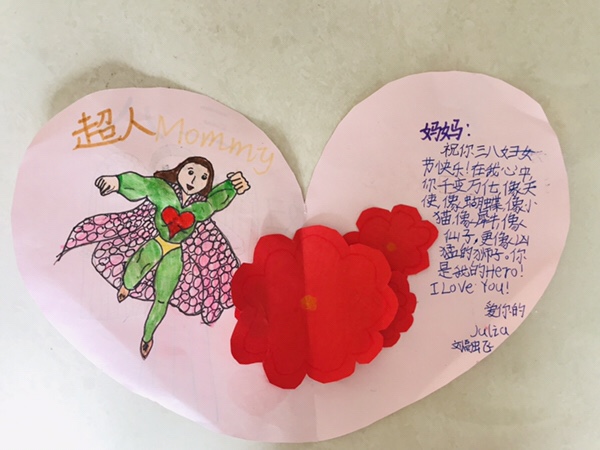 超人Mommy
妈妈：
祝你三八妇女
节快乐！在我心中
你千变万化，像天
使，像蝴蝶，像小
猫，像犀牛，像
仙子，更像凶
猛的狮子。你
是我的Hero！
I Love You！
爱你的
Julia